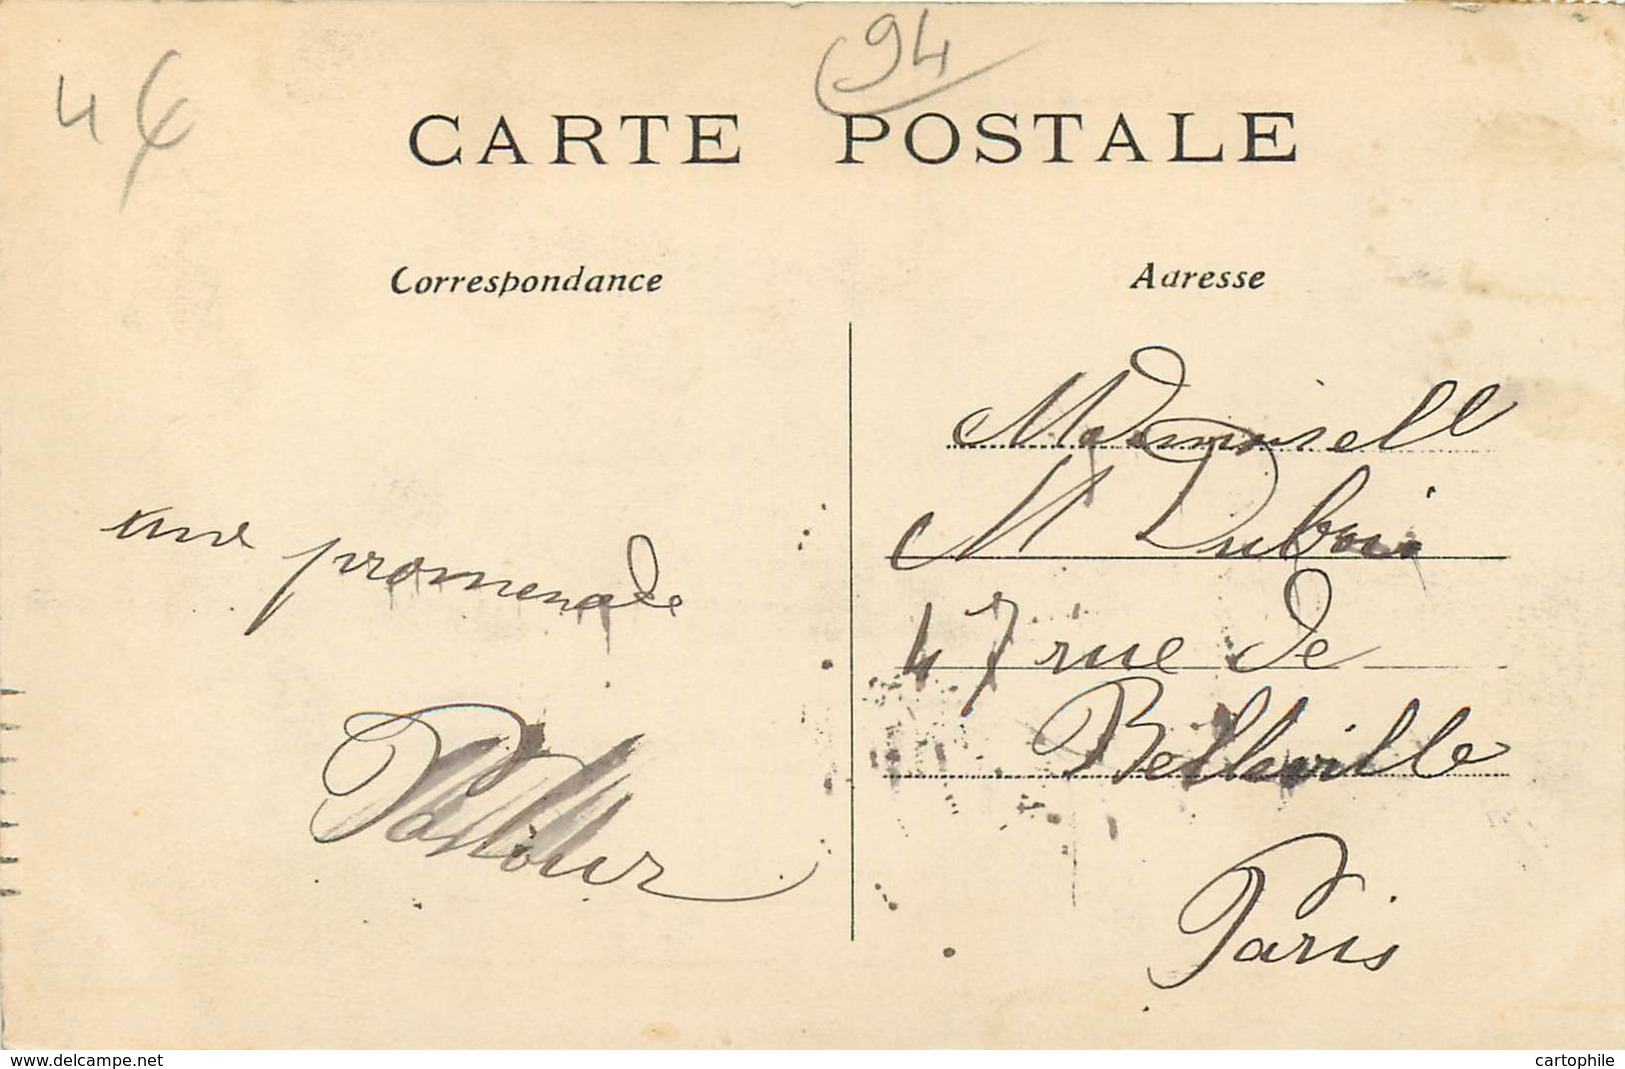 94
4€
CARTE POSTALE
Correspondance
Adresse
une promenade
Mademoisell
M Dubois
47 rue de
Belleville
Paris
www.delcampe.net
cartophile